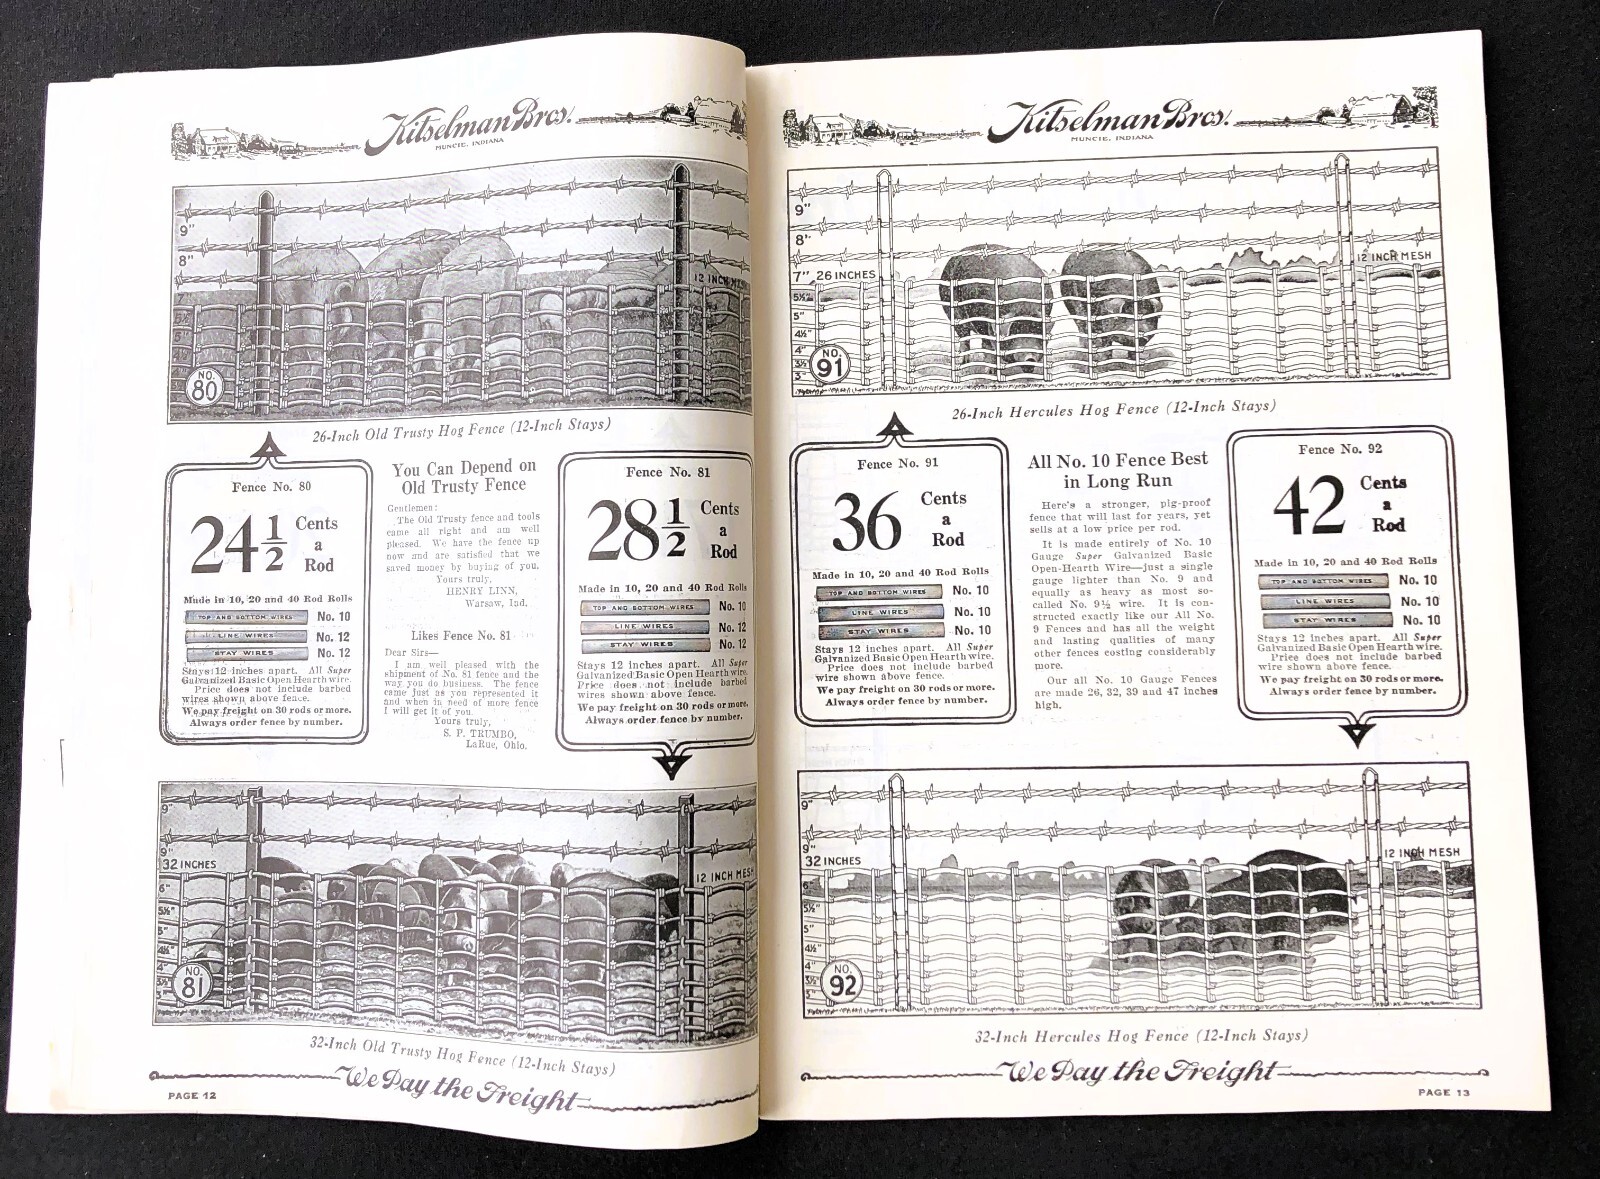 Kitselman Bros.
MUNCIE, INDIANA
9"
8"
12 INCH MESH
NO.
80
26-Inch Old Trusty Hog Fence (12-Inch Stays)
Fence No. 80
24½ Cents
a
Rod
Made in 10, 20 and 40 Rod Rolls
TOP AND BOTTOM WIRES No. 10
LINE WIRES No. 12
STAY WIRES No. 12
Stays 12 inches apart. All Super
Galvanized Basic Open Hearth wire.
Price does not include barbed
wires shown above fence.
We pay freight on 30 rods or more.
Always order fence by number.
You Can Depend on
Old Trusty Fence
Gentlemen:
The Old Trusty fence and tools
came all right and am well
pleased. We have the fence up
now and are satisfied that we
saved money by buying of you.
Yours truly,
HENRY LINN,
Warsaw, Ind.
Likes Fence No. 81
Dear Sirs—
I am well pleased with the
shipment of No. 81 fence and the
way you do business. The fence
came just as you represented it
and when in need of more fence
I will get it of you.
Yours truly,
S. P. TRUMBO,
LaRue, Ohio.
Fence No. 81
28½ Cents
a
Rod
Made in 10, 20 and 40 Rod Rolls
TOP AND BOTTOM WIRES No. 10
LINE WIRES No. 12
STAY WIRES No. 12
Stays 12 inches apart. All Super
Galvanized Basic Open Hearth wire.
Price does not include barbed
wires shown above fence.
We pay freight on 30 rods or more.
Always order fence by number.
9"
9"
32 INCHES
12 INCH MESH
6"
5½"
5"
4½"
4"
NO.
81
32-Inch Old Trusty Hog Fence (12-Inch Stays)
We Pay the Freight
PAGE 12
Kitselman Bros.
MUNCIE, INDIANA
9"
8"
7" 26 INCHES
12 INCH MESH
5½"
5"
4½"
4"
3½"
3"
NO.
91
26-Inch Hercules Hog Fence (12-Inch Stays)
Fence No. 91
36 Cents
a
Rod
Made in 10, 20 and 40 Rod Rolls
TOP AND BOTTOM WIRES No. 10
LINE WIRES No. 10
STAY WIRES No. 10
Stays 12 inches apart. All Super
Galvanized Basic Open Hearth wire.
Price does not include barbed
wires shown above fence.
We pay freight on 30 rods or more.
Always order fence by number.
All No. 10 Fence Best
in Long Run
Here's a stronger, pig-proof
fence that will last for years, yet
sells at a low price per rod.
It is made entirely of No. 10
Gauge Super Galvanized Basic
Open-Hearth Wire—just a single
gauge lighter than No. 9 and
equally as heavy as most so-
called No. 9½ wire. It is con-
structed exactly like our All No.
9 Fences and has all the weight
and lasting qualities of many
other fences costing considerably
more.
Our all No. 10 Gauge Fences
are made 26, 32, 39 and 47 inches
high.
Fence No. 92
42 Cents
a
Rod
Made in 10, 20 and 40 Rod Rolls
TOP AND BOTTOM WIRES No. 10
LINE WIRES No. 10
STAY WIRES No. 10
Stays 12 inches apart. All Super
Galvanized Basic Open Hearth wire.
Price does not include barbed
wires shown above fence.
We pay freight on 30 rods or more.
Always order fence by number.
9"
9"
32 INCHES
12 INCH MESH
6"
5½"
5"
4½"
4"
3½"
NO.
92
32-Inch Hercules Hog Fence (12-Inch Stays)
We Pay the Freight
PAGE 13